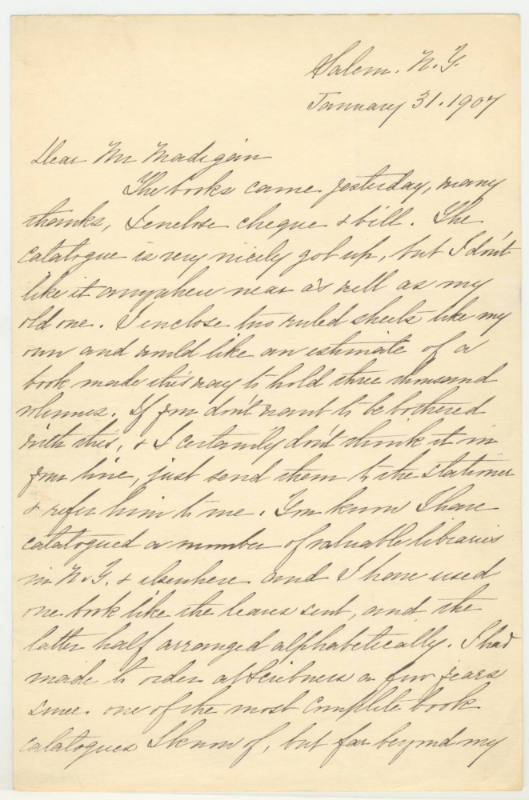 Salem. N.Y.
January 31. 1907
Dear Mr Madigan
The books came yesterday, many
thanks, I enclose cheque & bill. The
catalogue is very nicely got up, but I don't
like it anywhere near as well as my
old one. I enclose two ruled sheets like my
own and would like an estimate of a
book made this way to hold three thousand
volumes. If you don't want to be bothered
with this, & I certainly don't think it in
your line, just send them to the stationer
& refer him to me. You know I have
catalogued a number of valuable libraries
in N.Y. & elsewhere and I have used
one book like the leaves sent, and the
latter half arranged alphabetically. I had
made to order at Scribners a few years
since one of the most complete book
catalogues I know of, but far beyond my